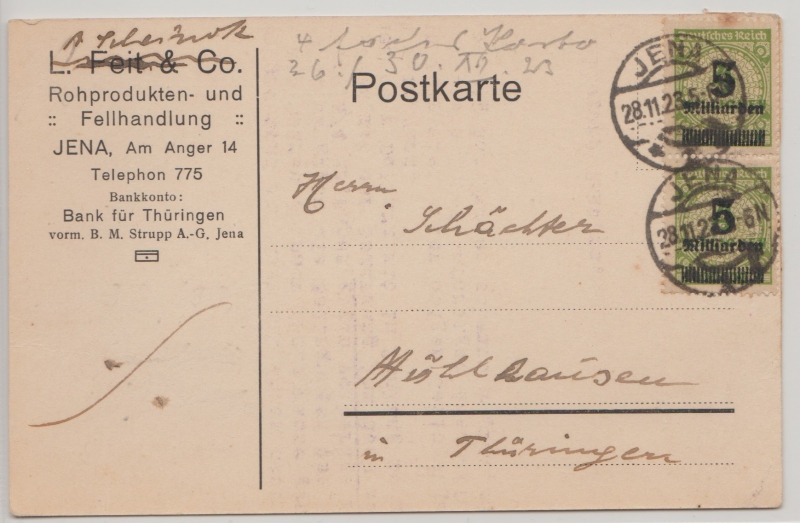 L. Feit & Co.
Rohprodukten- und
:: Fellhandlung ::
JENA, Am Anger 14
Telephon 775
Bankkonto:
Bank für Thüringen
vorm. B. M. Strupp A.-G, Jena
4
26.
30.
23
Postkarte
Deutsches Reich
5
Milliarden
JENA
28.11.23
Deutsches Reich
5
Milliarden
JENA
28.11.2 6N
Herrn
Schächter
Mühlhausen
in Thüringen